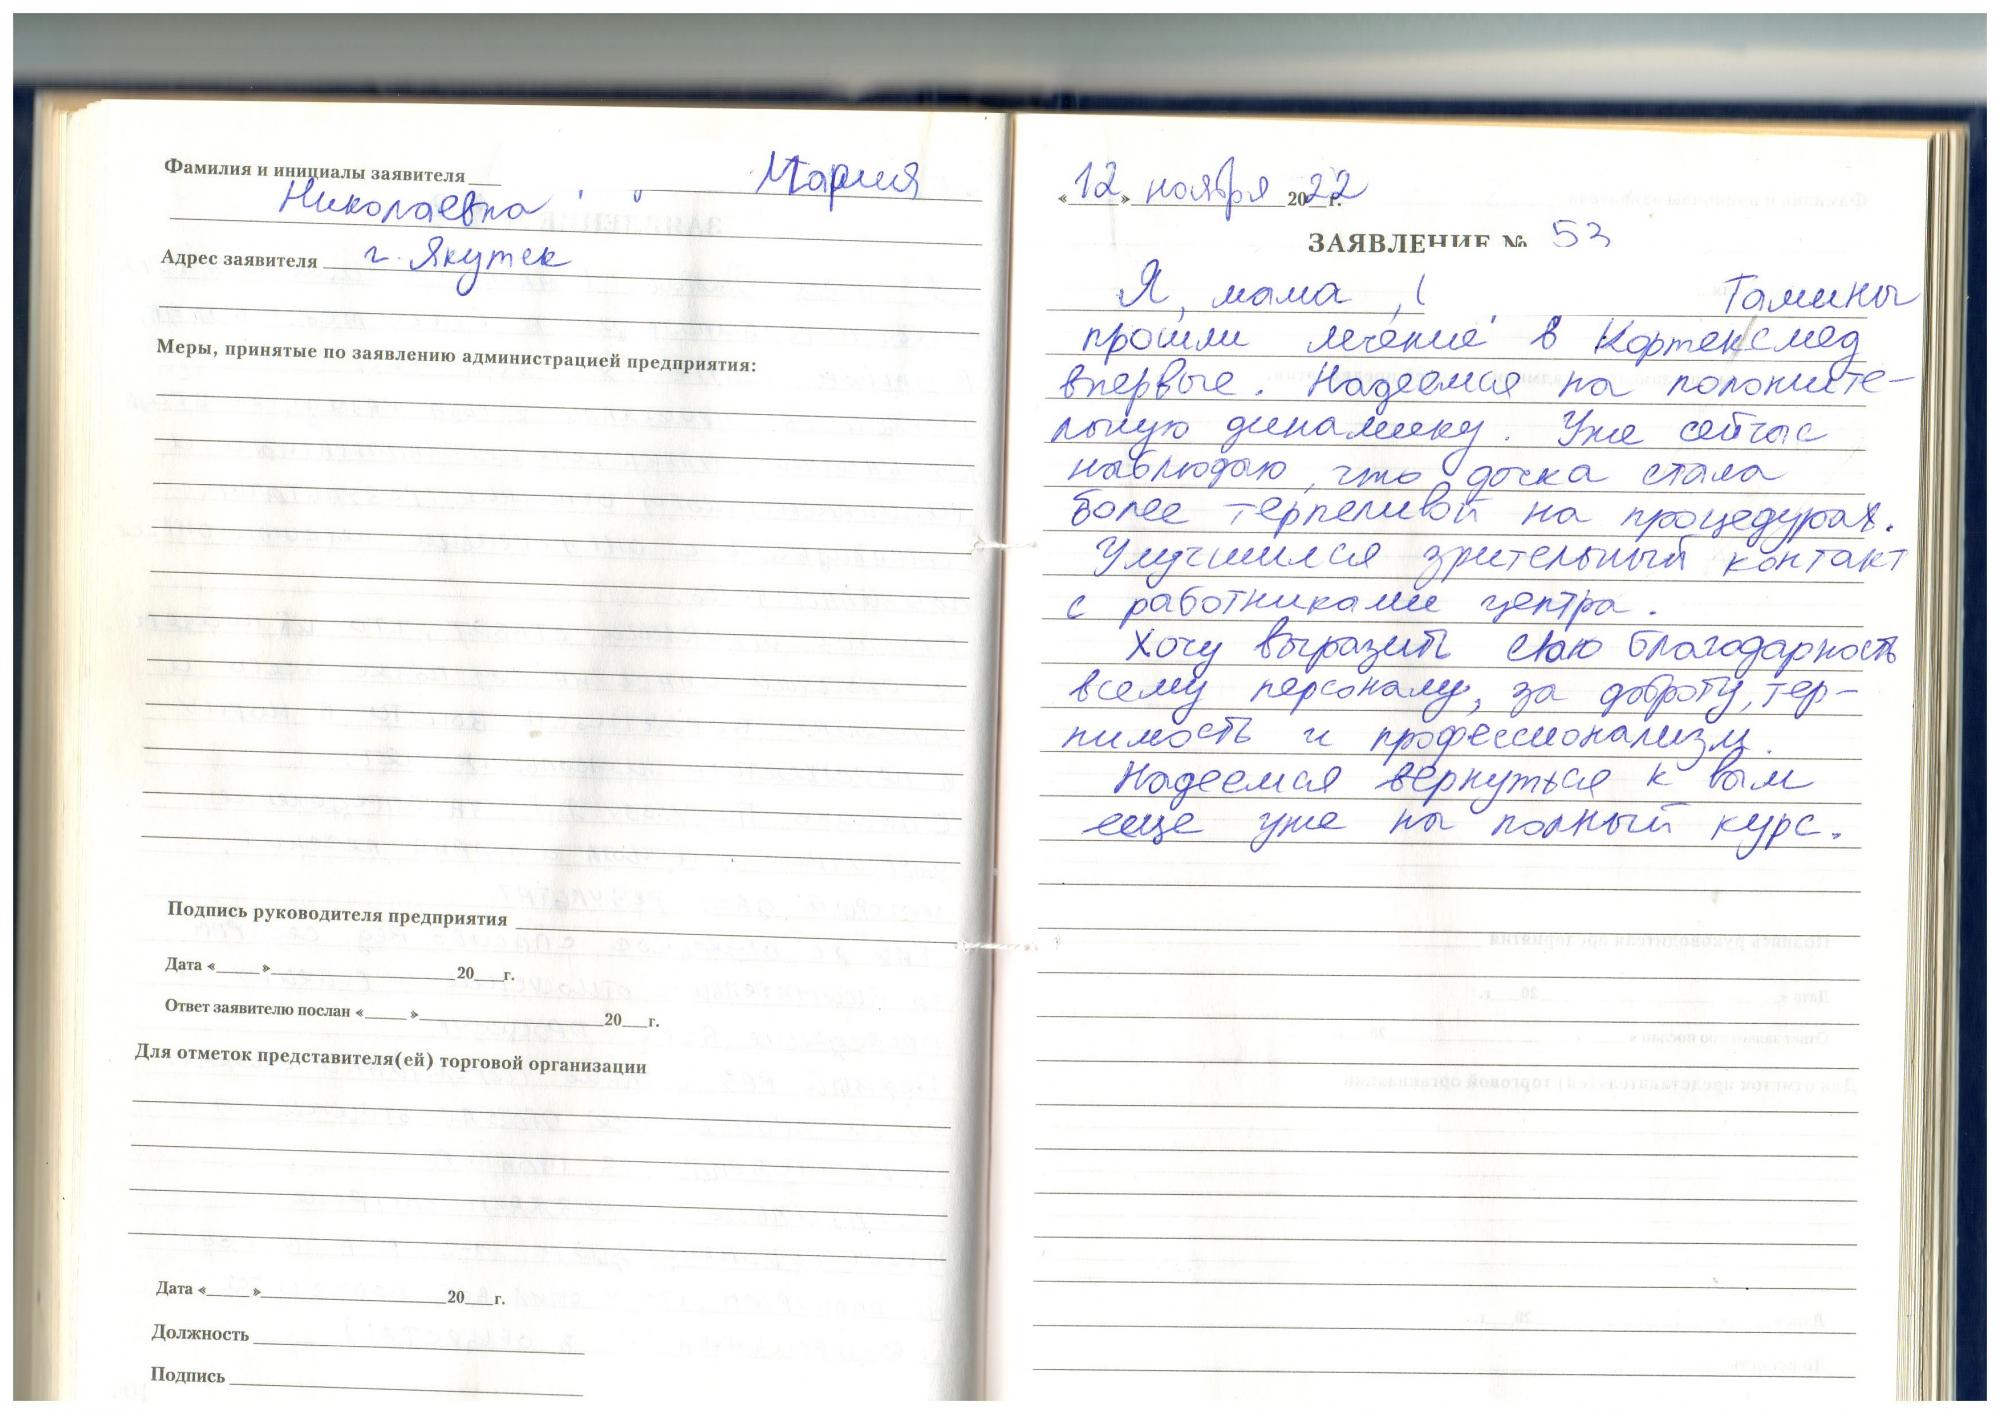 Фамилия и инициалы заявителя Мария
Николаевна
Адрес заявителя г. Якутск
Меры, принятые по заявлению администрацией предприятия:
Подпись руководителя предприятия
Дата «____» ____ 20__г.
Ответ заявителю послан «____» ____ 20__г.
Для отметок представителя(ей) торговой организации
Дата «____» ____ 20__г.
Должность
Подпись
«12» ноября 2022 г.
ЗАЯВЛЕНИЕ № 53
Я, мама, Тамины
прошли лечение в Кортексмед
впервые. Надеемся на положите-
льную динамику. Уже сейчас
наблюдаю, что дочка стала
более терпеливой на процедурах.
Улучшился зрительный контакт
с работниками центра.
Хочу выразить свою благодарность
всему персоналу, за доброту, тер-
пимость и профессионализм.
Надеемся вернуться к вам
еще уже на полный курс.